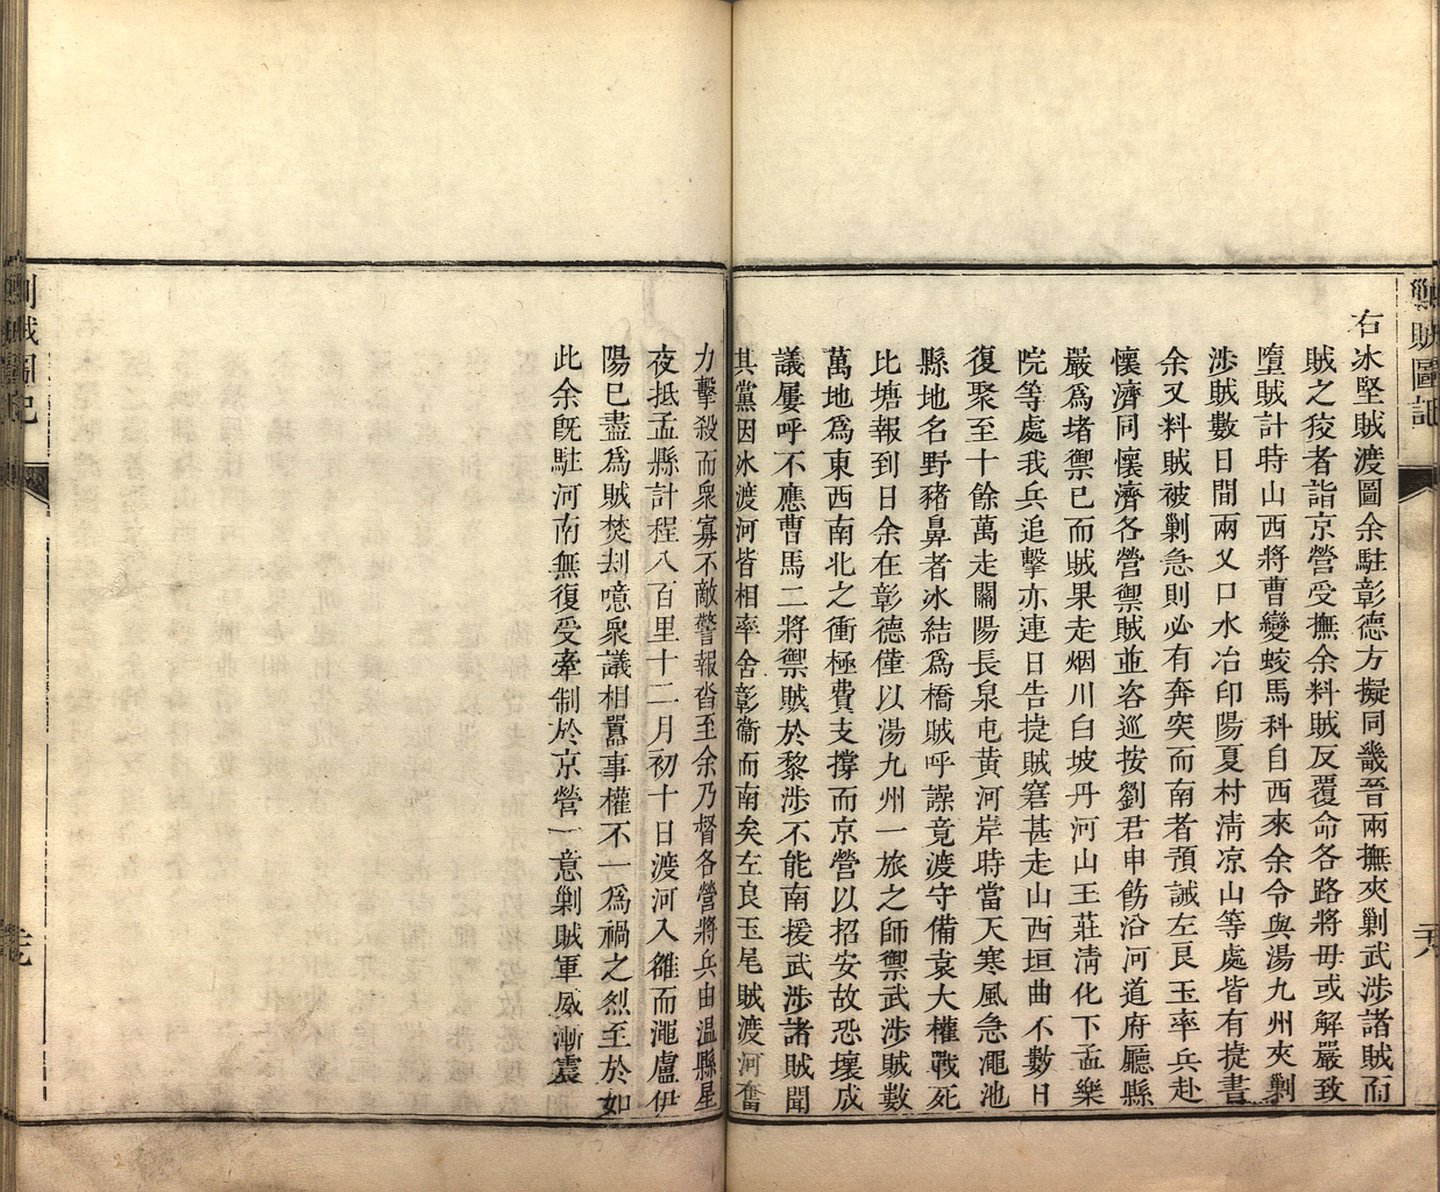 勦賊圖記
右冰堅賊渡圖余駐彰德方擬同畿晉兩撫夾剿武涉諸賊而
賊之狡者詣京營受撫余料賊反覆命各路將毋或解嚴致
墮賊計時山西將曹變蛟馬科自西來余令與湯九州夾剿
涉賊數日間兩乂口水冶印陽夏村清凉山等處皆有捷書
余又料賊被剿急則必有奔突而南者預誡左良玉率兵赴
懷濟同懷濟各營禦賊並咨巡按劉君申飭沿河道府廳縣
嚴爲堵禦已而賊果走烟川白坡丹河山王莊清化下孟樂
院等處我兵追擊亦連日告捷賊窘甚走山西垣曲不數日
復聚至十餘萬走關陽長泉屯黃河岸時當天寒風急澠池
縣地名野豬鼻者冰結爲橋賊呼譟竟渡守備袁大權戰死
比塘報到日余在彰德僅以湯九州一旅之師禦武涉賊數
萬地爲東西南北之衝極費支撐而京營以招安故恐壞成
議屢呼不應曹馬二將禦賊於黎涉不能南援武涉諸賊聞
其黨因冰渡河皆相率舍彰衞而南矣左良玉尾賊渡河奮
力擊殺而衆寡不敵警報沓至余乃督各營將兵由溫縣星
夜抵孟縣計程八百里十二月初十日渡河入雒而澠盧伊
陽已盡爲賊焚刦噫衆議相嚻事權不一爲禍之烈至於如
此余旣駐河南無復受牽制於京營一意剿賊軍威漸震